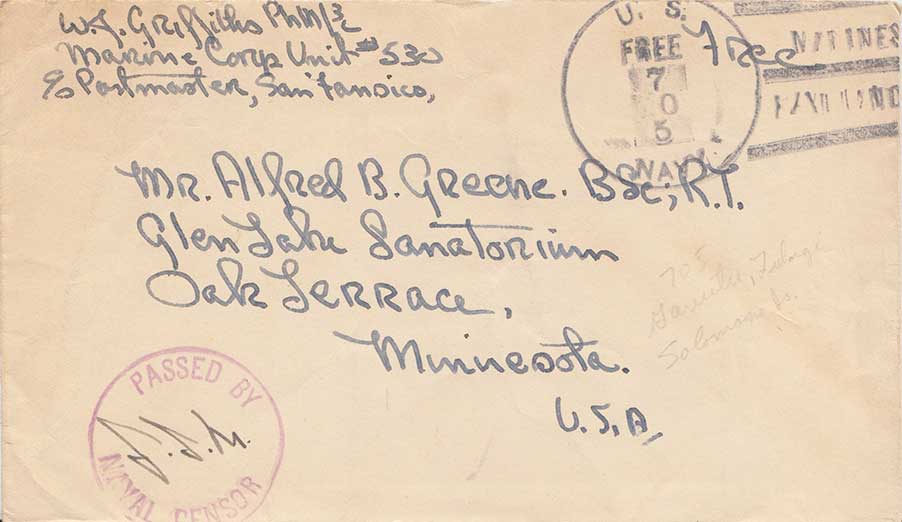 W.J. Griffiths PhM/3c
Marine Corp Unit #530
c/o Postmaster, San Fansico,
U. S.
FREE
7
0
5
NAVY.
Free
MARINES
Mr. Alfred B. Greene. Bsc; R.T.
Glen Lake Sanatorium
Oak Terrace,
Minnesota.
U.S.A.
705
Gavutu, Tulagi
Solomons Is.
PASSED BY
NAVAL CENSOR